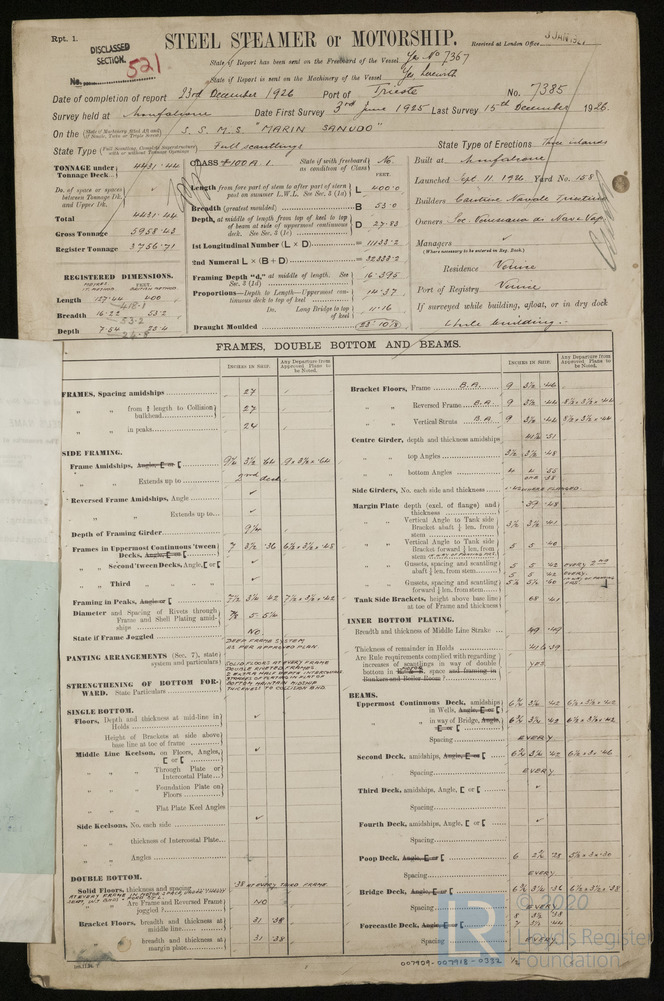 Rpt. 1.
DISCLASSED
SECTION.
No. 521
STEEL STEAMER or MOTORSHIP.
Received at London Office
State if Report has been sent on the Freeboard of the Vessel Yes No 7367
State if Report is sent on the Machinery of the Vessel Yes herewith
Date of completion of report 23rd December 1926 Port of Trieste No. 7385
Survey held at Monfalcone Date First Survey 3rd June 1925 Last Survey 15th December 1926
On the S.S. M.S. "MARIN SANUDO"
State Type Full scantlings State Type of Erections Three islands
TONNAGE under Tonnage Deck 4431.44
Do. of space or spaces between Tonnage Dk. and Upper Dk.
Total 4431.44
Gross Tonnage 5958.43
Register Tonnage 3756.71
REGISTERED DIMENSIONS.
Length 400
Breadth 16.22 53.2
Depth 7.54
CLASS 100 A 1 State if with freeboard as condition of Class No
FEET.
Length from fore part of stem to after part of stern post on summer L.W.L. See Sec. 3 (1a) L 400.0
Breadth (greatest moulded) B 53.0
Depth, at middle of length from top of keel to top of beam at side of uppermost continuous deck. See Sec. 3 (1c) D 27.83
1st Longitudinal Number (L × D) = 11133.2
2nd Numeral L × (B + D) = 32333.2
Framing Depth "d," at middle of length. See Sec. 3 (1d) 16.395
Proportions—Depth to Length—Uppermost continuous deck to top of keel 14.37
Do. Long Bridge to top of keel 11.16
Draught Moulded
Built at Monfalcone
Launched Sept 11. 1926 Yard No. 158
Builders Cantiere Navale Triestino
Owners Soc. Veneziana di Nav. a Vap.
Managers
(Where necessary to be entered in Reg. Book.)
Residence Venice
Port of Registry Venice
If surveyed while building, afloat, or in dry dock
while building.
FRAMES, DOUBLE BOTTOM AND BEAMS.
INCHES IN SHIP.
Any Departure from Approved Plans to be Noted.
INCHES IN SHIP.
Any Departure from Approved Plans to be Noted.
FRAMES, Spacing amidships 27
" " from ⅕ length to Collision bulkhead 27
" " in peaks 24
SIDE FRAMING.
Frame Amidships, Angle, E or [ 9½ 3½ .64 9 × 3½ × .64
" " Extends up to 2nd deck
Reversed Frame Amidships, Angle
" " Extends up to
Depth of Framing Girder 9½
Frames in Uppermost Continuous 'tween Decks, Angle, E or [ 7 3½ .36
" " Second 'tween Decks, Angle, E or [
" " Third " "
Framing in Peaks, Angle or [ 7½ 3½ .42 7½ × 3½ × .42
Diameter and Spacing of Rivets through Frame and Shell Plating amidships 7/8
State if Frame Joggled NO
PANTING ARRANGEMENTS (Sec. 7), state system and particulars DEEP FRAME SYSTEM
AS PER APPROVED PLAN
STRENGTHENING OF BOTTOM FORWARD. State Particulars SOLID FLOORS AT EVERY FRAME
DOUBLE RIVETED FRAMES
THICKNESS TO COLLISION BHD
SINGLE BOTTOM.
Floors, Depth and thickness at mid-line in Holds
Height of Brackets at side above base line at toe of frame
Middle Line Keelson, on Floors, Angles, E or [
" " Through Plate or Intercostal Plate
" " Foundation Plate on Floors
" " Flat Plate Keel Angles
Side Keelsons, No. each side
" " thickness of Intercostal Plate
" " Angles
DOUBLE BOTTOM.
Solid Floors, thickness and spacing .38 AT EVERY THIRD FRAME
" " Are Frame and Reversed Frame joggled? NO
Bracket Floors, breadth and thickness at middle line 31 .38
" " breadth and thickness at margin plate 31 .38
Bracket Floors, Frame B.A. 9 3½ .46
" " Reversed Frame B.A. 9 3½ .44 8½ × 3½ × .44
" " Vertical Struts B.A. 9 3½ .44 8½ × 3½ × .44
Centre Girder, depth and thickness amidships 41½ .51
" " top Angles 3½ 3½ .48
" " bottom Angles 4 4 .55
Side Girders, No. each side and thickness
Margin Plate depth (excl. of flange) and thickness 39 .48
" " Vertical Angle to Tank side Bracket abaft ¼ len. from stem 3½ 3½ .41
" " Vertical Angle to Tank side Bracket forward ¼ len. from stem 5 5 .40
" " Gussets, spacing and scantling abaft ¼ len. from stem 5 5 .42 EVERY 2nd
" " Gussets, spacing and scantling forward ¼ len. from stem
Tank Side Brackets, height above base line at toe of Frame and thickness 68 .41
INNER BOTTOM PLATING.
Breadth and thickness of Middle Line Strake 49 .49
Thickness of remainder in Holds .41 to .39
Are Rule requirements complied with regarding increases of scantlings in way of double bottom in MOTOR space and framing in Bunkers and Boiler Room? yes
BEAMS.
Uppermost Continuous Deck, amidships in Wells, Angle, E or [ 6½ 3½ .42
" " in way of Bridge, Angle, E or [ 6½ 3½ .42
Spacing EVERY
Second Deck, amidships, Angle, E or [ 6½ 3½ .42
Spacing EVERY
Third Deck, amidships, Angle, E or [
Spacing
Fourth Deck, amidships, Angle, E or [
Spacing
Poop Deck, Angle, E or [ 6
Spacing EVERY
Bridge Deck, Angle, E or [ 6½ 3½ .36
Spacing EVERY
Forecastle Deck, Angle, E or [ 7 3½ .44
Spacing EVERY
© 2020
Lloyd's Register
Foundation
007909-007918-0332 1/2